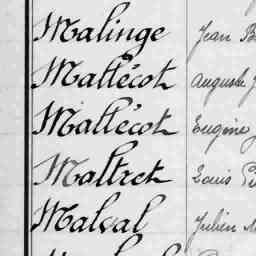 Malinge Jean
Mallécot Auguste
Mallécot Eugène
Maltret Louis
Malval Julien